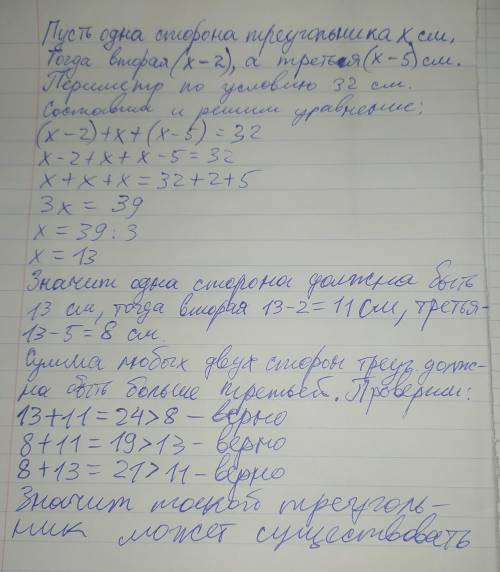 Пусть одна сторона треугольника x см,
тогда вторая (x-2), а третья (x-5) см.
Периметр по условию 32 см.
Составим и решим уравнение:
(x-2)+x+(x-5)=32
x-2+x+x-5=32
x+x+x=32+2+5
3x = 39
x = 39:3
x = 13
Значит одна сторона должна быть
13 см, тогда вторая 13-2=11 см, третья-
13-5=8 см.
Сумма любых двух сторон треуг. долж-
на быть больше третьей. Проверим:
13+11=24>8 - верно
8+11=19>13 - верно
8+13=21>11 - верно
Значит такой треуголь-
ник может существовать